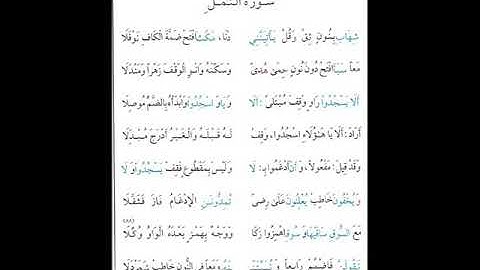 سُورَةُ النَّمْلِ
شِهَابٍ بِنُونٍ ثِقْ وَقُلْ يَأْتِيَنَّنِي دَنَا، مَكُثَ افْتَحْ ضَمَّةَ الْكَافِ نَوْفَلَا
مَعًا سَبَأَ افْتَحْ دُونَ نُونٍ حِمًى هُدًى وَسَكِّنْهُ وَانْوِ الْوَقْفَ زُهْرًا وَمَنْدَلَا
أَلَا يَسْجُدُوا رَاوٍ وَقِفْ مُبْتَلًى: أَلَا وَيَا وَاسْجُدُوا وَابْدَأْهُ بِالضَّمِّ مُوصِلَا
أَرَادَ: أَلَا يَا هَؤُلَاءِ اسْجُدُوا، وَقِفْ لَهُ قَبْلَهُ وَالْغَيْرُ أَدْرَجَ مُبْدِلَا
وَقَدْ قِيلَ: مَفْعُولًا، وَأَنْ أَدْغَمُوا بِلَا وَلَيْسَ بِمَقْطُوعٍ فَقِفْ يَسْجُدُوا وَلَا
وَيُخْفُونَ خَاطِبْ يُعْلِنُونَ عَلَى رِضًى تُمِدُّونَنِ الْإِدْغَامُ فَازَ فَثَقَّلَا
مَعَ السُّوقِ سَاقَيْهَا وَسُوقِ اهْمِزُوا زَكَا وَوَجْهٌ بِهَمْزٍ بَعْدَهُ الْوَاوُ وُكِّلَا
نَقُولَنَّ فَاضْمُمْ رَابِعًا وَنُبَيِّتَنْنَهُ وَمَعًا فِي النُّونِ خَاطِبْ شَمَرْدَلَا